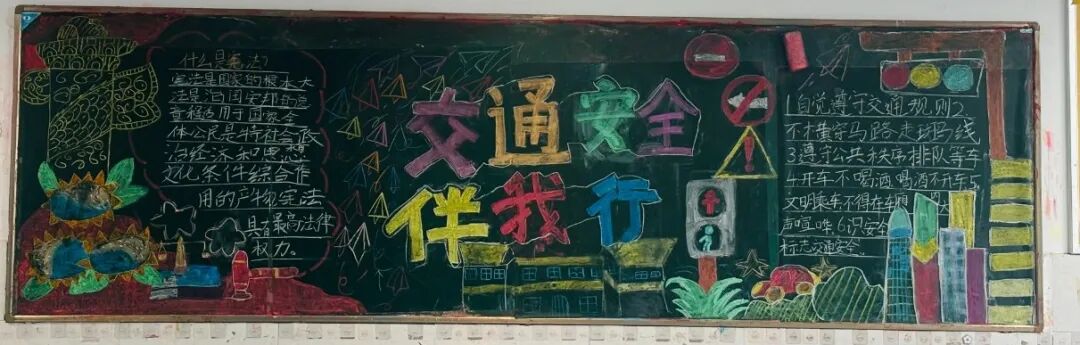 什么是宪法?
宪法是国家的根本大
法是治国安邦的总
章程适用于国家全
体公民是特社会政
治经济和思想
文化条件综合作
用的产物宪法
具有最高法律
权力。
交通安全
伴我行
1自觉遵守交通规则2、
不横穿马路走斑马线
3遵守公共秩序排队等车
4开车不喝酒喝酒不开车5、
文明乘车不得在车厢 大
声喧哗6识安全
标志交通安全。